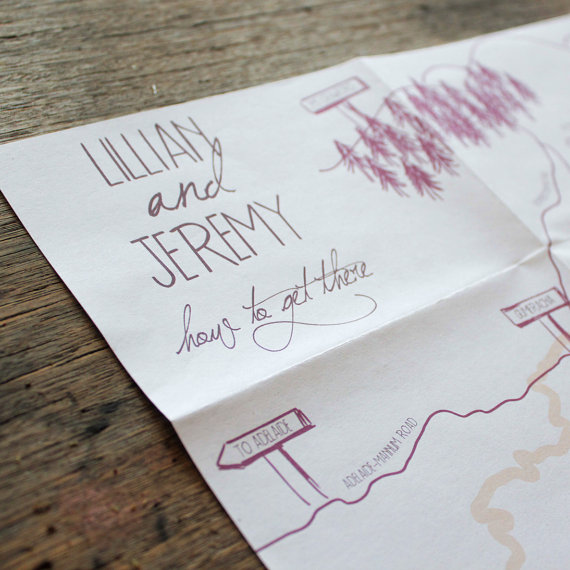 LILLIAN
and
JEREMY
how to get there
TO ADELAIDE
ADELAIDE-MANNUM ROAD